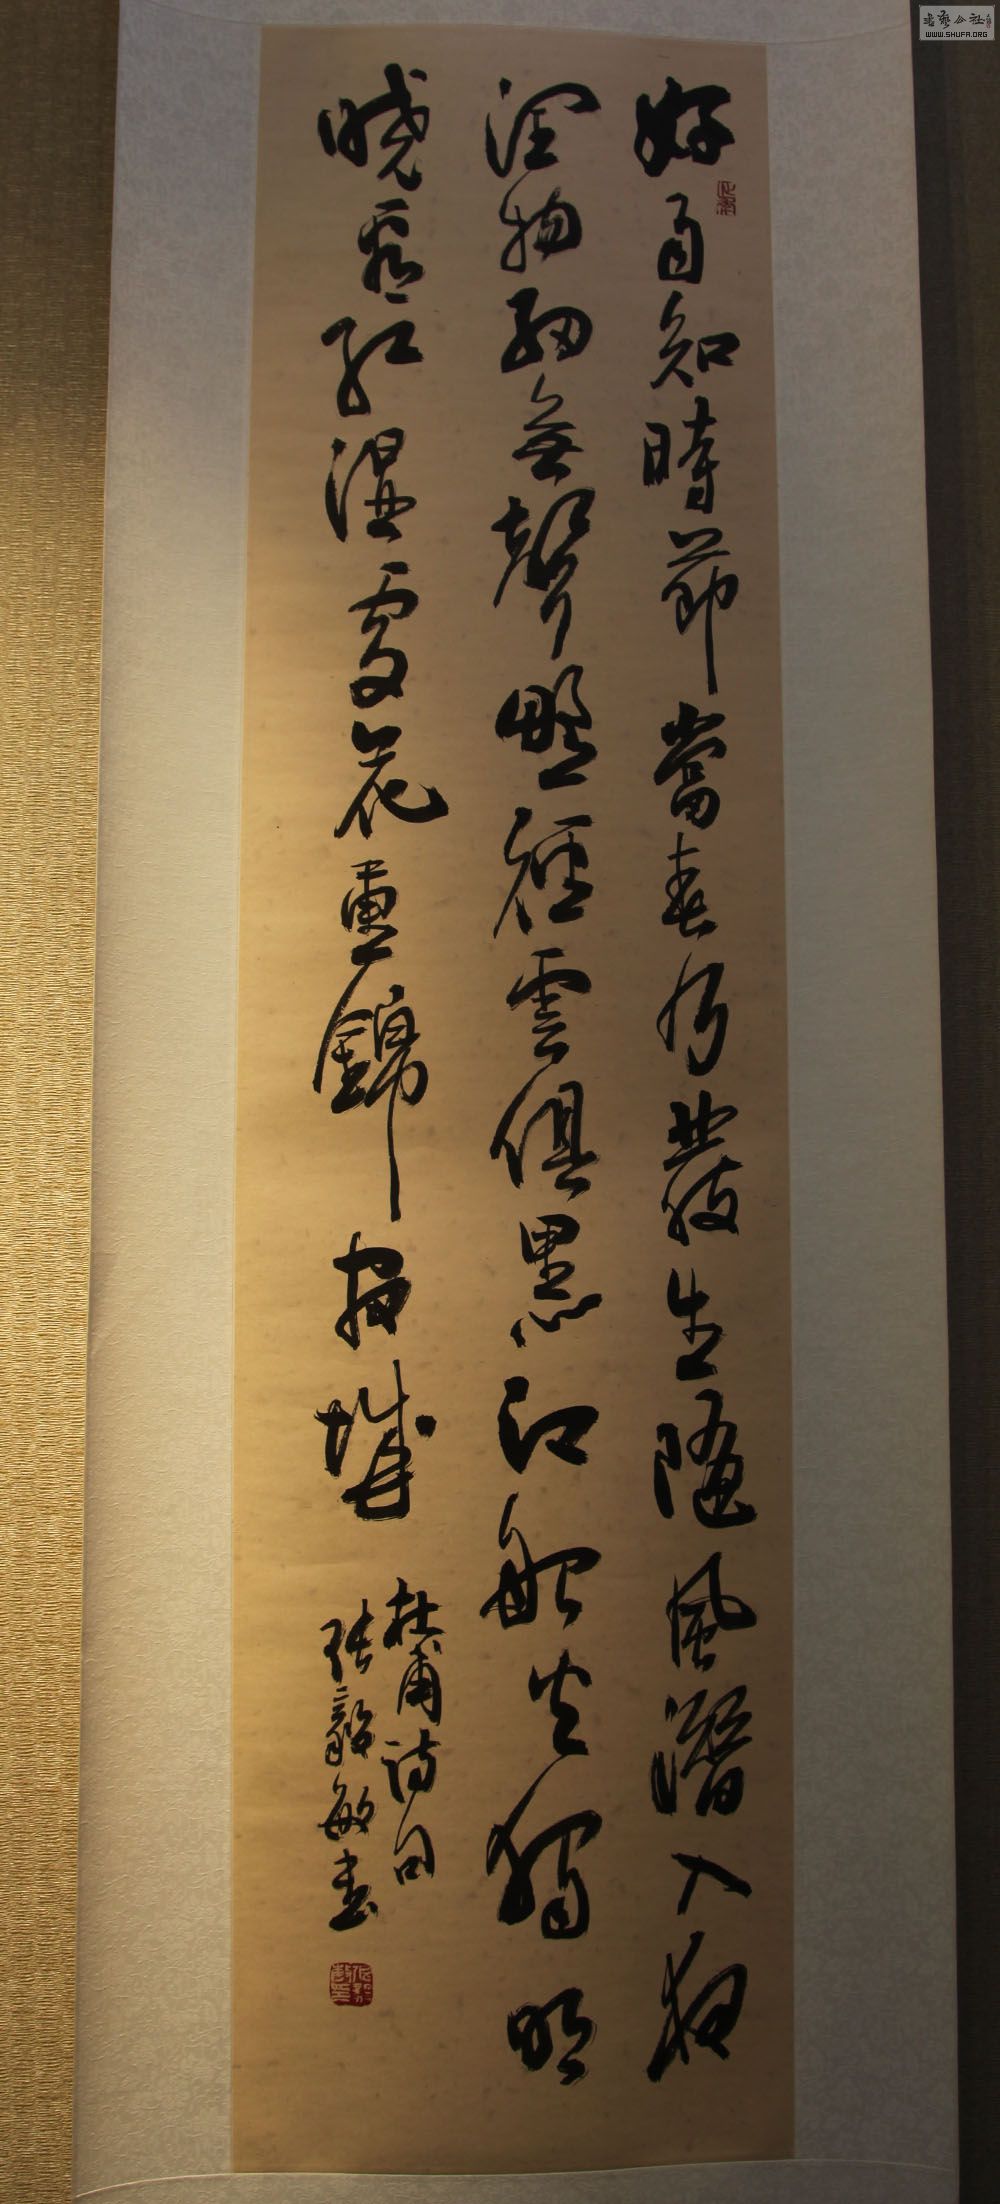 好雨知時節當春乃發生隨風潛入夜
潤物細無聲野徑雲俱黑江船火獨明
曉看紅濕處花重錦官城
杜甫詩句
張毅敏書
書藝公社
WWW.SHUFA.ORG